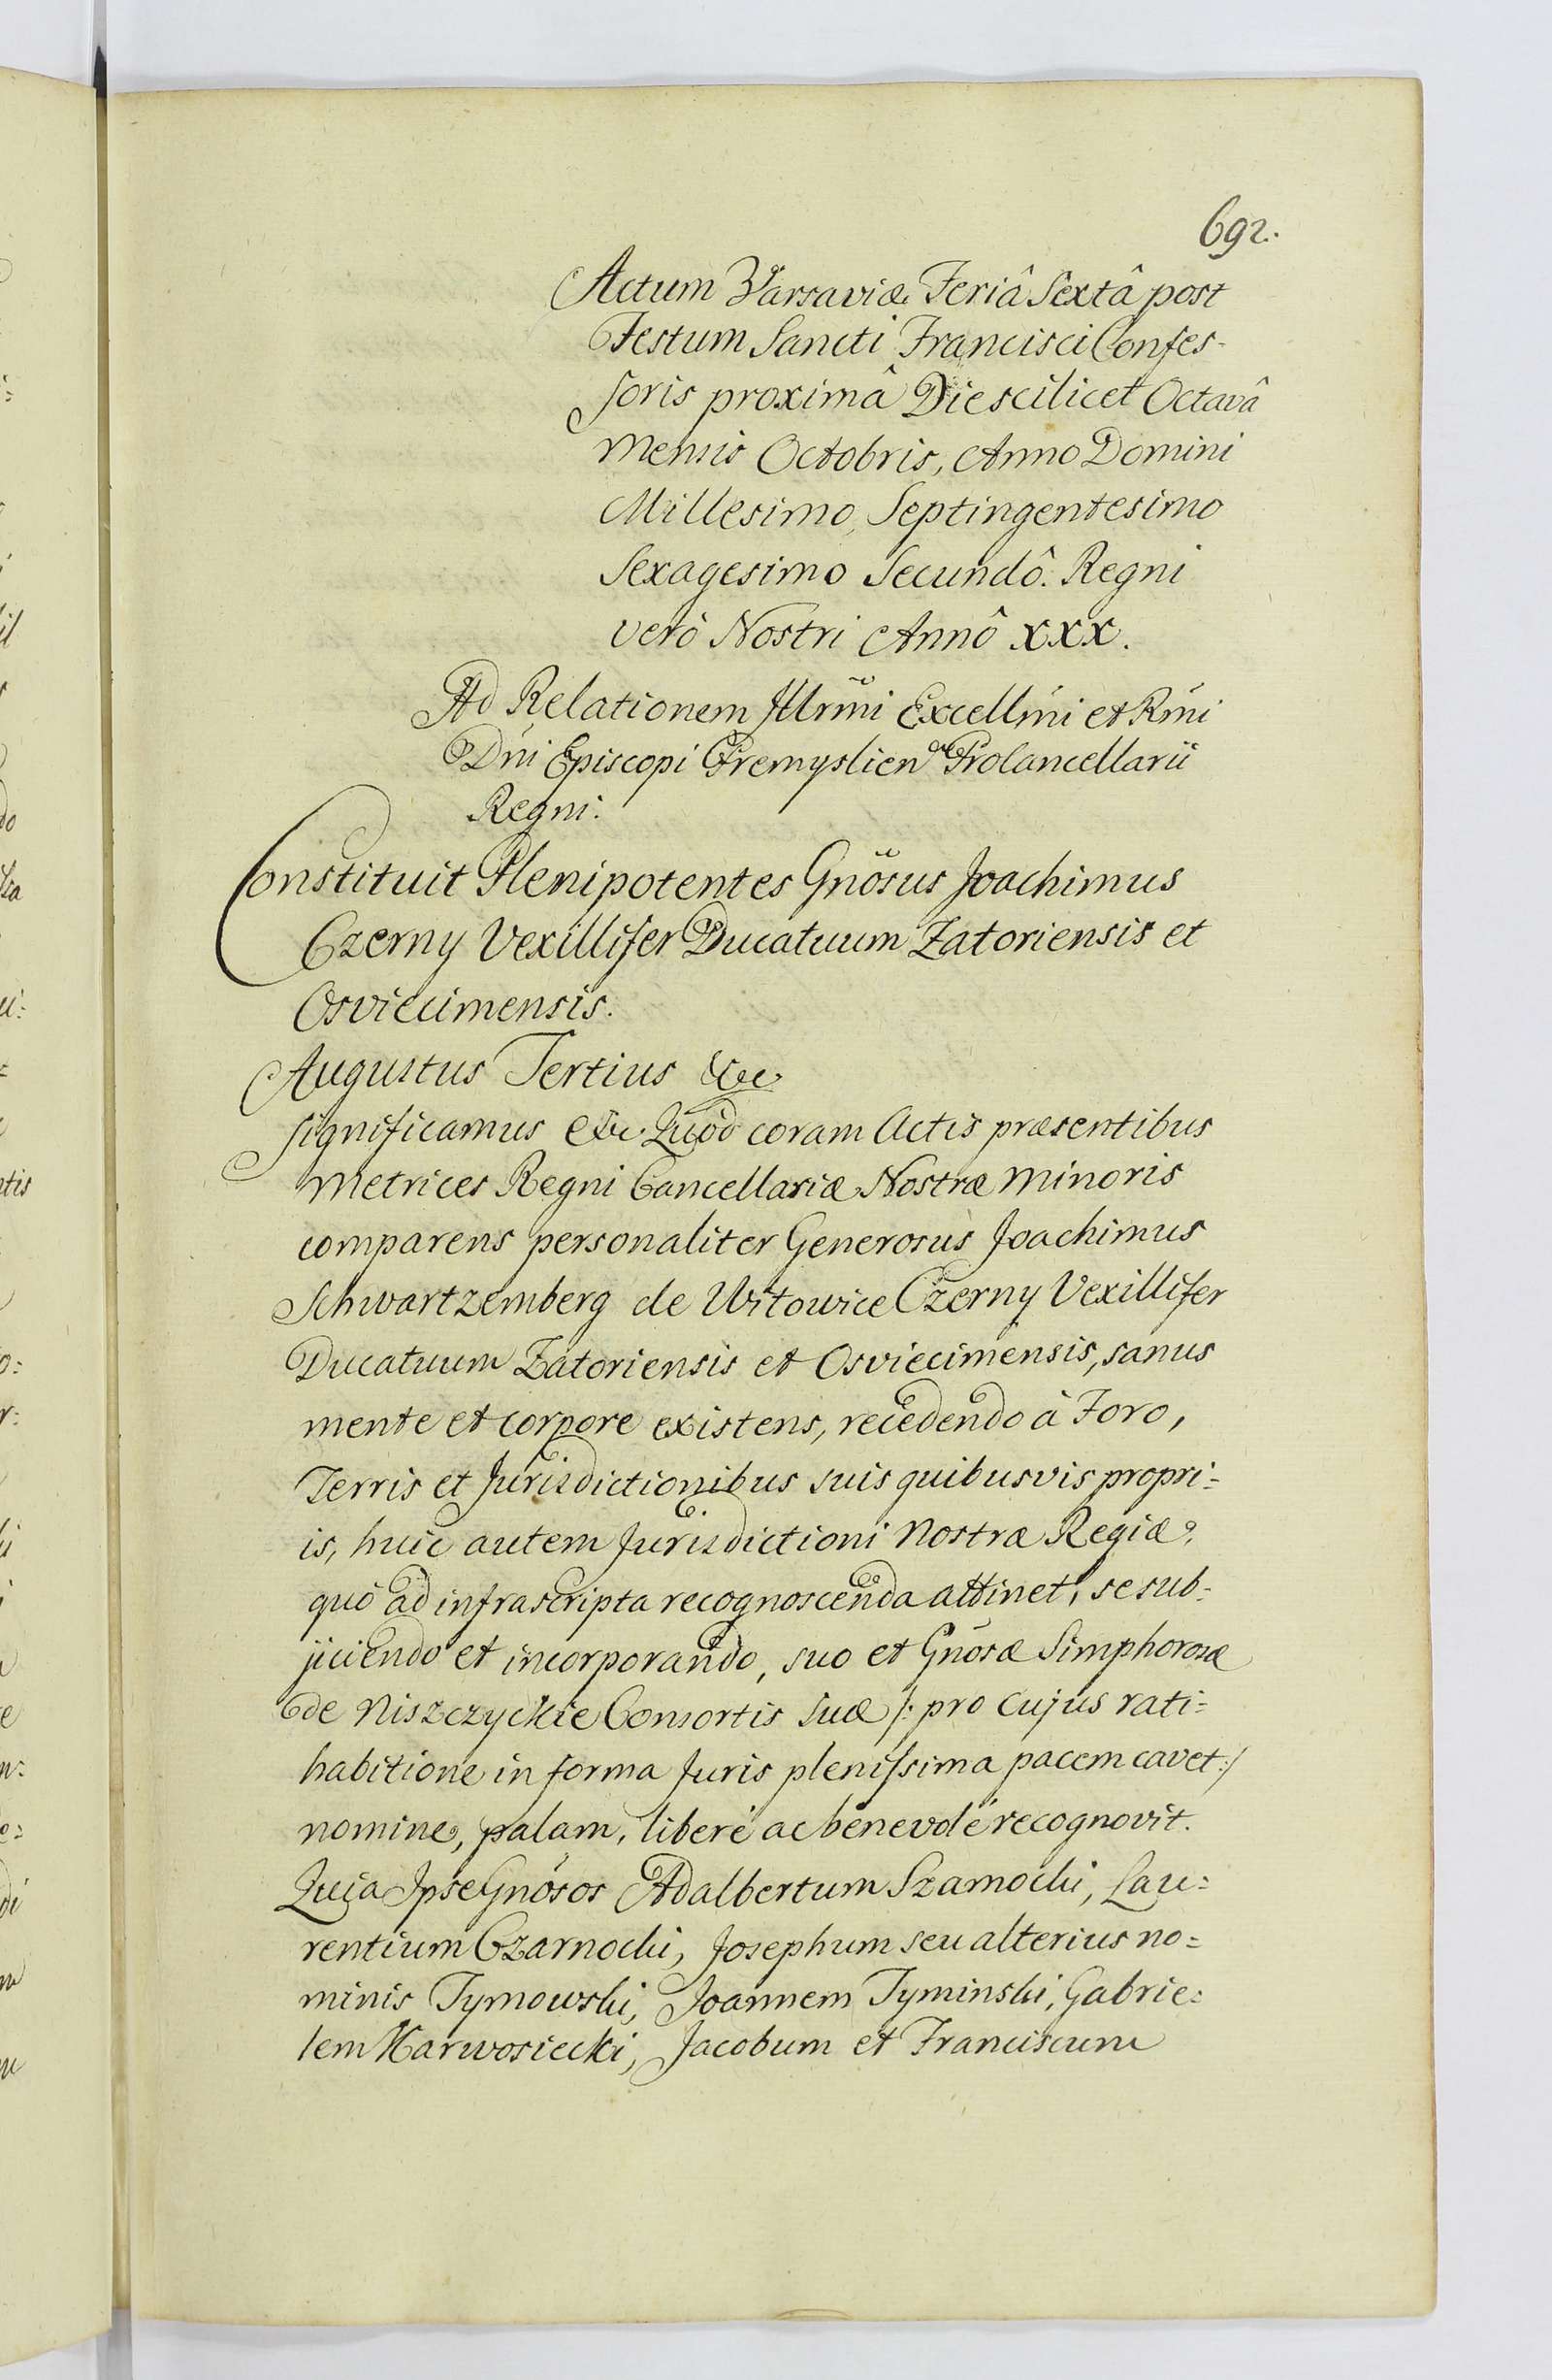 692.
Actum Varsaviæ Feriâ Sextâ post
Festum Sancti Francisci Confes-
soris proximâ Die scilicet Octavâ
Mensis Octobris, Anno Domini
Millesimo Septingentesimo
Sexagesimo Secundô. Regni
verò Nostri Annô XXX.
Ad Relationem Illrmi Excellmi et Rmi
Dni Episcopi Premyslien Procancellarii
Regni.
Constituit Plenipotentes Gnosus Joachimus
Czerny Vexillifer Ducatuum Zatoriensis et
Osviecimensis.
Augustus Tertius &c
Significamus &c. Quòd coram Actis præsentibus
Metrices Regni Cancellariæ Nostræ Minoris
comparens personaliter Generosus Joachimus
Schwartzemberg de Witowice Czerny Vexillifer
Ducatuum Zatoriensis et Osviecimensis, sanus
mente et corpore existens, recedendo à Foro,
Terris et Jurisdictionibus suis quibusvis propri=
is, huic autem Jurisdictioni Nostræ Regiæ,
quò ad infrascripta recognoscenda attinet, se sub-
jiciendo et incorporando, suo et Gnosæ Simphorosæ
de Niszczyckie Consortis suæ /: pro cujus rati=
habitione in forma Juris plenissima pacem cavet :/
nomine, palam, liberè ac benevolè recognovit.
Quia Ipse Gnosos Adalbertum Szamocki, Lau=
rentium Czarnocki, Josephum seu alterius no=
minis Tymowski, Joannem Tyminski, Gabrie=
lem Karwosiecki, Jacobum et Franciscum